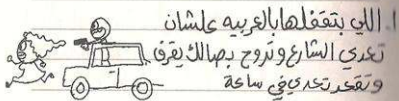 ١. اللي بتقفلها بالعربيه علشان
تعدي الشارع و تروح بصالك يقرف
و تقعد تعدي في ساعة